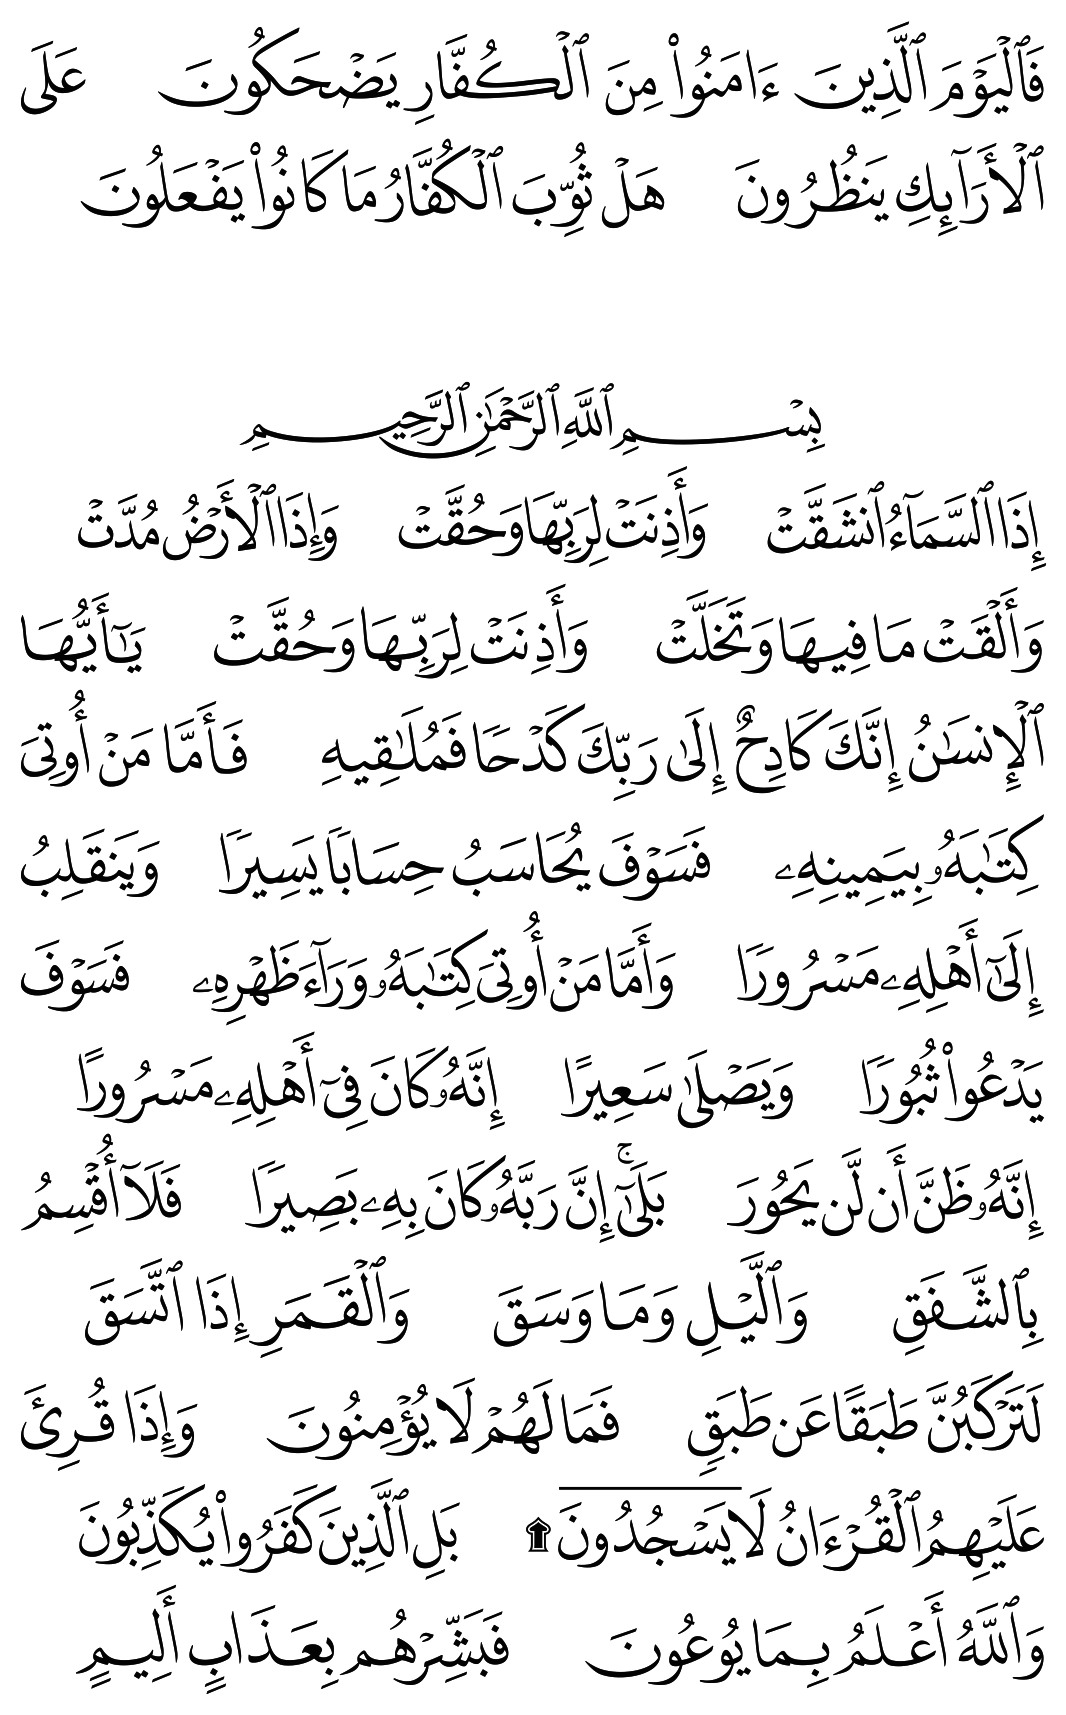 فَٱلۡيَوۡمَ ٱلَّذِينَ ءَامَنُواْ مِنَ ٱلۡكُفَّارِ يَضۡحَكُونَ عَلَى
ٱلۡأَرَآئِكِ يَنظُرُونَ هَلۡ ثُوِّبَ ٱلۡكُفَّارُ مَا كَانُواْ يَفۡعَلُونَ
بِسۡمِ ٱللَّهِ ٱلرَّحۡمَٰنِ ٱلرَّحِيمِ
إِذَا ٱلسَّمَآءُ ٱنشَقَّتۡ وَأَذِنَتۡ لِرَبِّهَا وَحُقَّتۡ وَإِذَا ٱلۡأَرۡضُ مُدَّتۡ
وَأَلۡقَتۡ مَا فِيهَا وَتَخَلَّتۡ وَأَذِنَتۡ لِرَبِّهَا وَحُقَّتۡ يَٰٓأَيُّهَا
ٱلۡإِنسَٰنُ إِنَّكَ كَادِحٌ إِلَىٰ رَبِّكَ كَدۡحٗا فَمُلَٰقِيهِ فَأَمَّا مَنۡ أُوتِيَ
كِتَٰبَهُۥ بِيَمِينِهِۦ فَسَوۡفَ يُحَاسَبُ حِسَابٗا يَسِيرٗا وَيَنقَلِبُ
إِلَىٰٓ أَهۡلِهِۦ مَسۡرُورٗا وَأَمَّا مَنۡ أُوتِيَ كِتَٰبَهُۥ وَرَآءَ ظَهۡرِهِۦ فَسَوۡفَ
يَدۡعُواْ ثُبُورٗا وَيَصۡلَىٰ سَعِيرًا إِنَّهُۥ كَانَ فِيٓ أَهۡلِهِۦ مَسۡرُورًا
إِنَّهُۥ ظَنَّ أَن لَّن يَحُورَ بَلَىٰٓۚ إِنَّ رَبَّهُۥ كَانَ بِهِۦ بَصِيرٗا فَلَآ أُقۡسِمُ
بِٱلشَّفَقِ وَٱلَّيۡلِ وَمَا وَسَقَ وَٱلۡقَمَرِ إِذَا ٱتَّسَقَ
لَتَرۡكَبُنَّ طَبَقًا عَن طَبَقٖ فَمَا لَهُمۡ لَا يُؤۡمِنُونَ وَإِذَا قُرِئَ
عَلَيۡهِمُ ٱلۡقُرۡءَانُ لَا يَسۡجُدُونَ۩ بَلِ ٱلَّذِينَ كَفَرُواْ يُكَذِّبُونَ
وَٱللَّهُ أَعۡلَمُ بِمَا يُوعُونَ فَبَشِّرۡهُم بِعَذَابٍ أَلِيمٍ